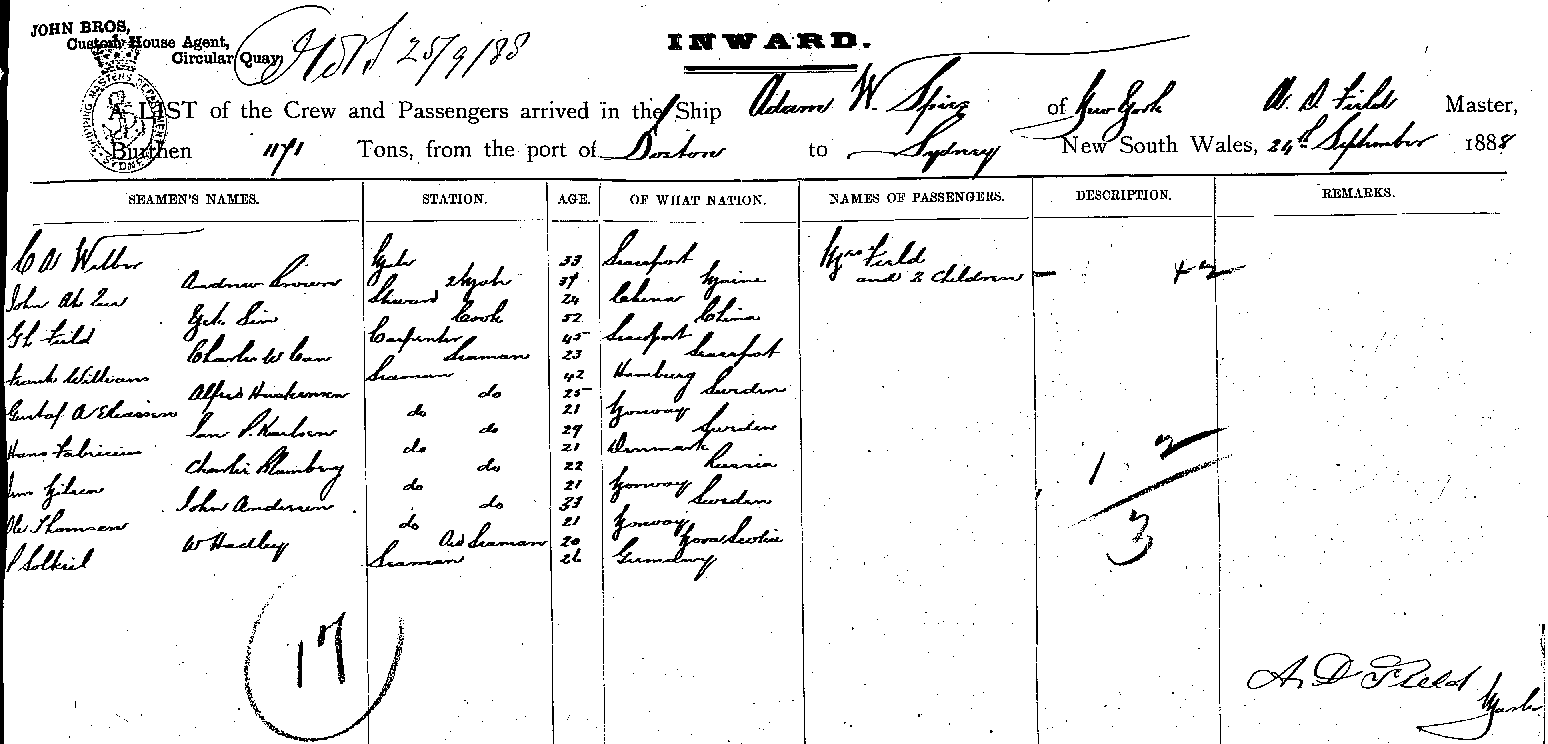 JOHN BROS,
Custom House Agent,
Circular Quay
25/9/88
INWARD.
A LIST of the Crew and Passengers arrived in the Ship Adam W. Spies of New York A. D Field Master,
Burthen 1171 Tons, from the port of Boston to Sydney New South Wales, 24th September 1888
SEAMEN'S NAMES. STATION. AGE. OF WHAT NATION. NAMES OF PASSENGERS. DESCRIPTION. REMARKS.
C A Wilbur Mate 33 Searsport Mrs Field
Andrew Brown 2 Mate 39 Maine and 2 Children — + 2
John Ah Steward 24 China
Sin Cook 52 China
Field Carpenter 45 Searsport
Charles W Carr Seaman 23 Searsport
Frank Williams Seaman 42 Hamburg
Alfred do 25 Sweden
Gustaf A do 21 Norway
P. Karlsen do 29 Sweden
Hans Fabricius do 21 Denmark
Charlie Blomberg do 22 Russia
do 21 Norway
John Anderson do 33 Sweden
Ole Thomsen do 21 Norway
W Hadley Ord Seaman 20 Nova Scotia
P Seaman 26 Germany
1. 2
3
17
A. D Field
Master